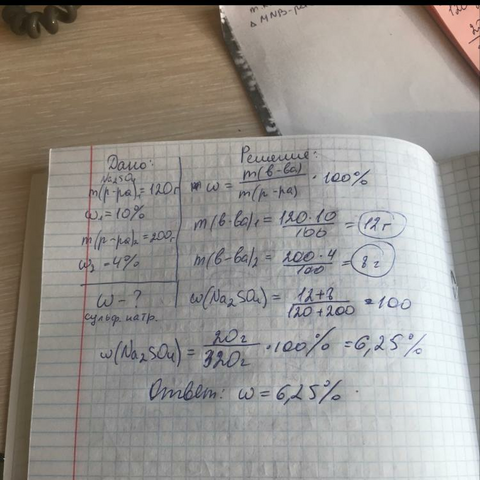 Дано:
Na2SO4
m(р-ра)1=120г
ω1=10%
m(р-ра)2=200г
ω2 -4%
ω-?
сульф. натр.
Решение:
ω = m(в-ва) / m(р-ра) · 100%
m(в-ва)1 = 120·10 / 100 = 12г
m(в-ва)2 = 200·4 / 100 = 8г
ω(Na2SO4) = 12+8 / 120+200 =100
ω(Na2SO4) = 20г / 320г ·100% =6,25%
Ответ: ω = 6,25%.
△ MNB-